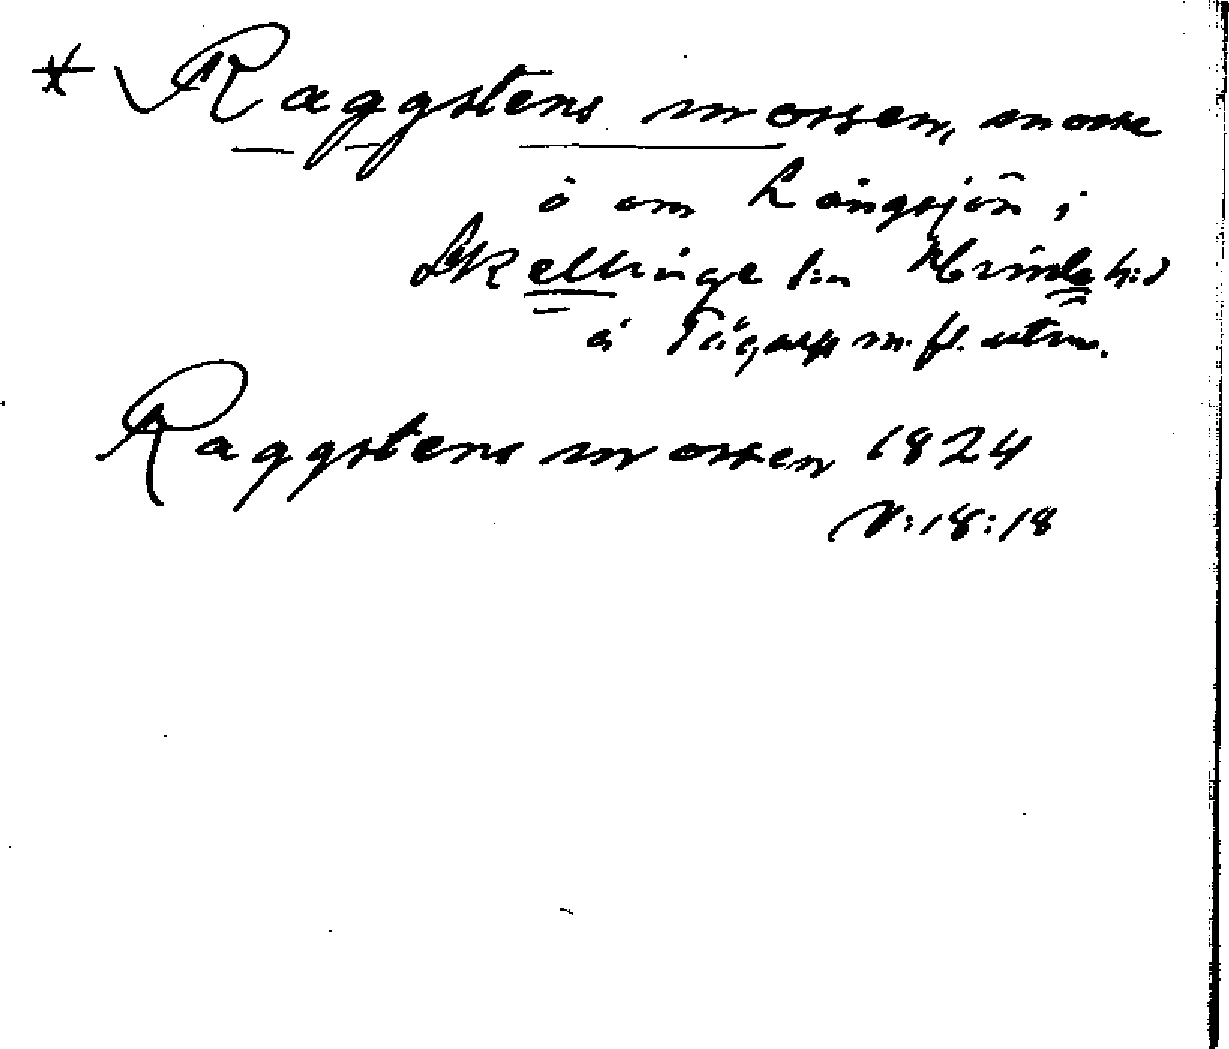 * Raggstens mossen, mosse
ö om Långsjön i
Skellinge s:n
å Tågarp m. fl. utm.
Raggstens mossen 1824
V:18:18